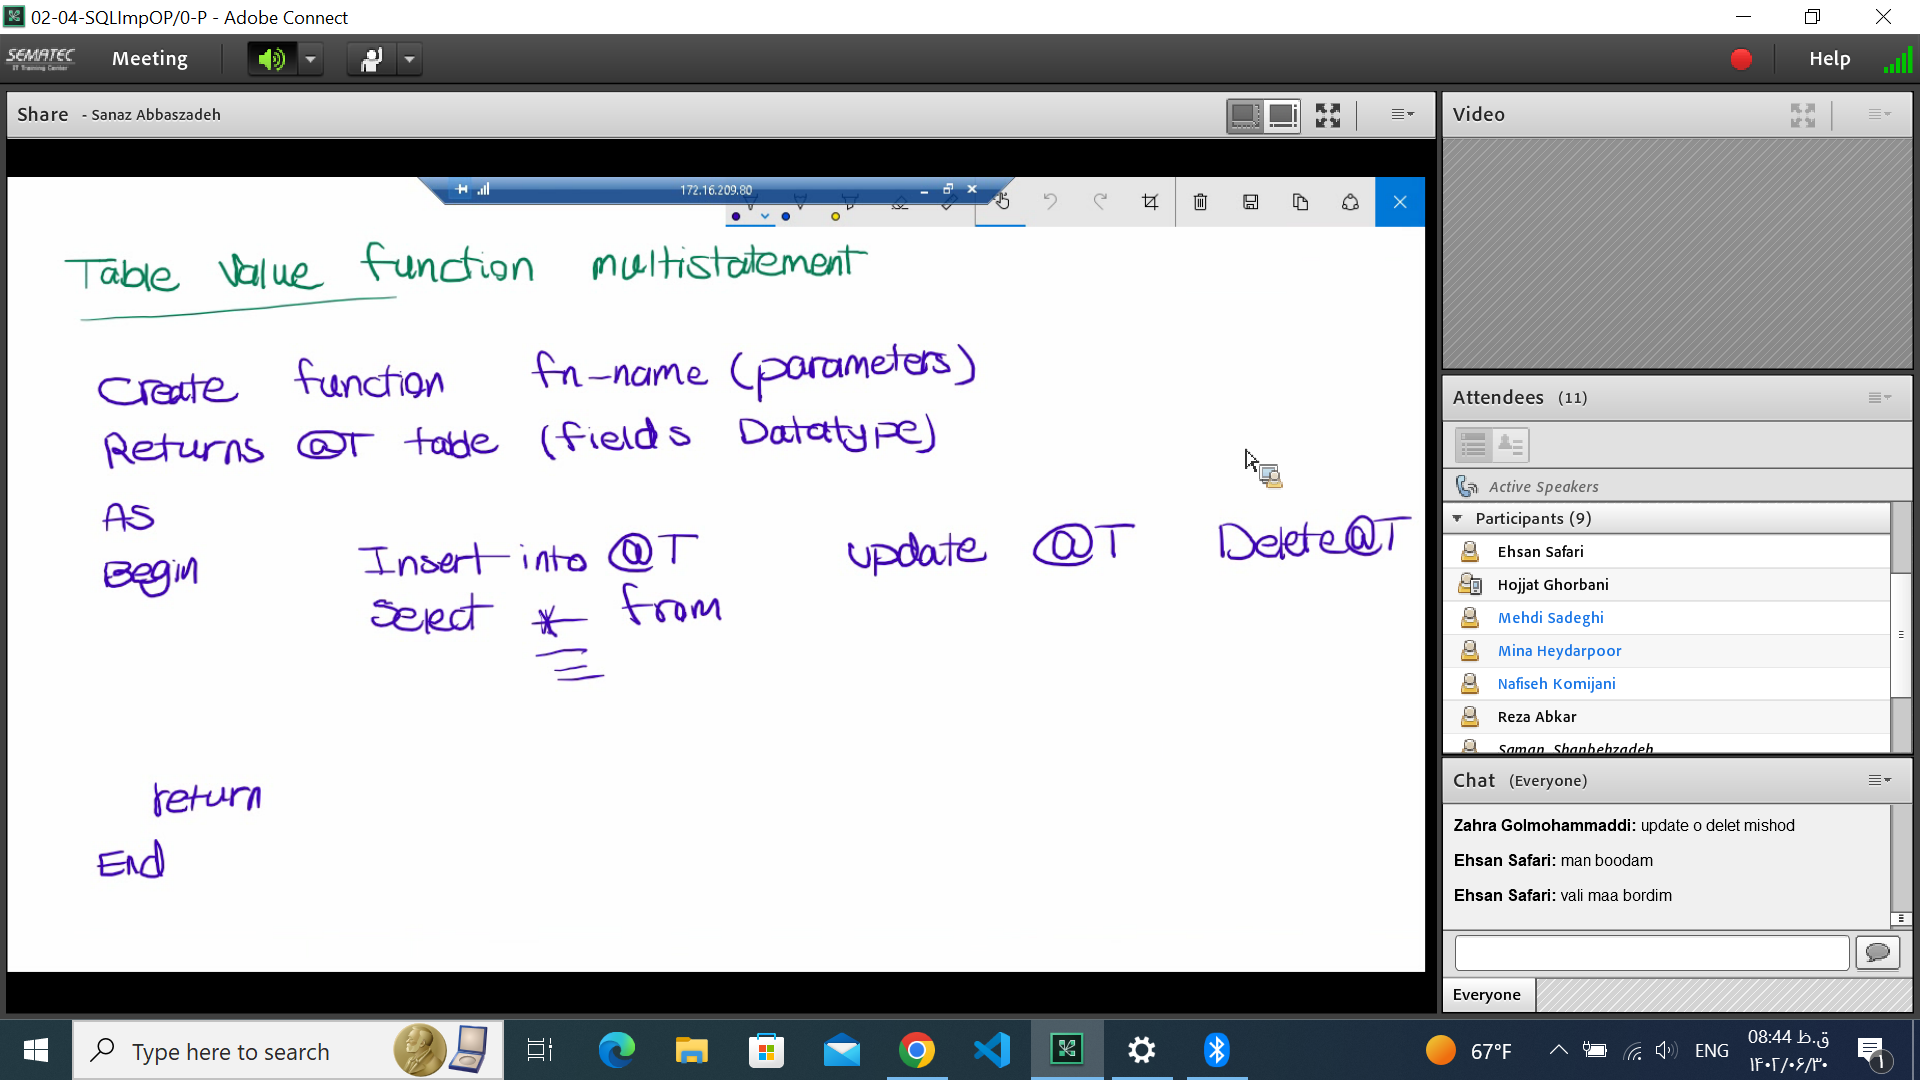 02-04-SQLImpOP/0-P - Adobe Connect
SEMATEC
IT Training Center
Meeting
Help
Share - Sanaz Abbaszadeh
172.16.209.80
Table Value function multistatement
Create function fn-name (parameters)
Returns @T table (fields Datatype)
As
Begin
Insert into @T update @T Delete @T
Select * from
return
End
Video
Attendees (11)
Active Speakers
Participants (9)
Ehsan Safari
Hojjat Ghorbani
Mehdi Sadeghi
Mina Heydarpoor
Nafiseh Komijani
Reza Abkar
Saman Shanbehzadeh
Chat (Everyone)
Zahra Golmohammaddi: update o delet mishod
Ehsan Safari: man boodam
Ehsan Safari: vali maa bordim
Everyone
Type here to search
67°F
ENG
08:44 ق.ظ
۱۴۰۲/۰۶/۳۰
۱